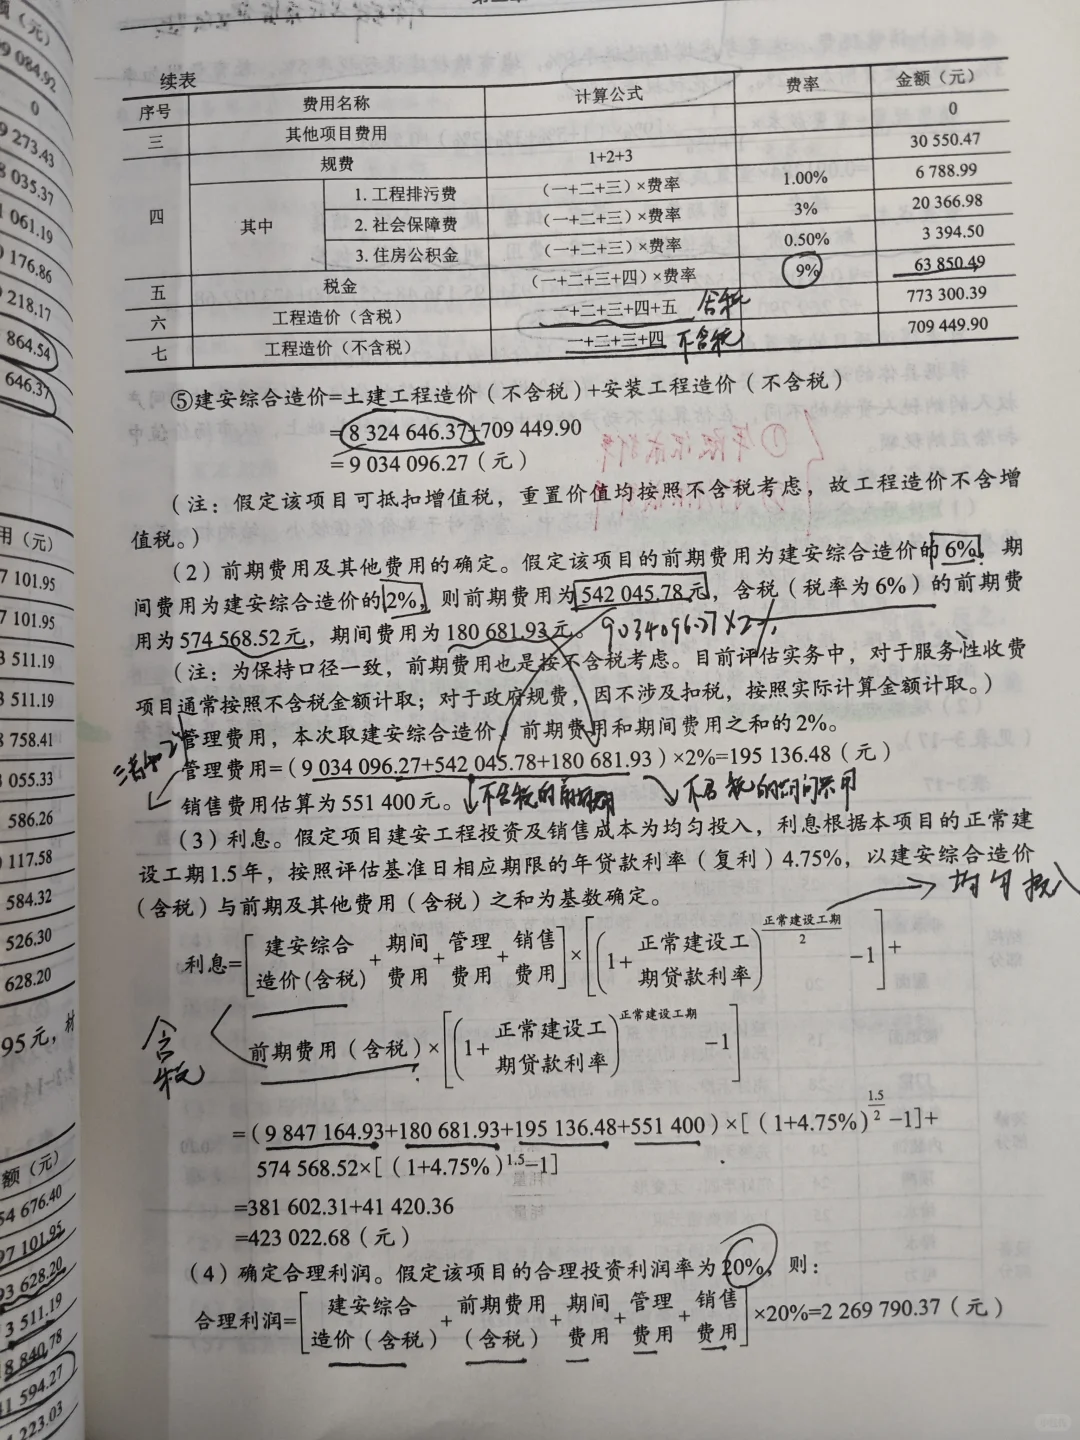 续表
序号 费用名称 计算公式 费率 金额（元）
三 其他项目费用 0
四 规费 1+2+3 30 550.47
其中 1. 工程排污费 （一+二+三）×费率 1.00% 6 788.99
2. 社会保障费 （一+二+三）×费率 3% 20 366.98
3. 住房公积金 （一+二+三）×费率 0.50% 3 394.50
五 税金 （一+二+三+四）×费率 9% 63 850.49
六 工程造价（含税） 一+二+三+四+五 含税 773 300.39
七 工程造价（不含税） 一+二+三+四 不含税 709 449.90
⑤建安综合造价=土建工程造价（不含税）+安装工程造价（不含税）
=8 324 646.37+709 449.90
=9 034 096.27（元）
（注：假定该项目可抵扣增值税，重置价值均按照不含税考虑，故工程造价不含增
值税。）
（2）前期费用及其他费用的确定。假定该项目的前期费用为建安综合造价的6%，期
间费用为建安综合造价的2%，则前期费用为542 045.78元，含税（税率为6%）的前期费
用为574 568.52元，期间费用为180 681.93元。 9034096.27×2%
（注：为保持口径一致，前期费用也是按不含税考虑。目前评估实务中，对于服务性收费
项目通常按照不含税金额计取；对于政府规费，因不涉及扣税，按照实际计算金额计取。）
管理费用，本次取建安综合造价、前期费用和期间费用之和的2%。
管理费用=（9 034 096.27+542 045.78+180 681.93）×2%=195 136.48（元）
销售费用估算为551 400元。 不含税的前期费用 不含税的期间费用
（3）利息。假定项目建安工程投资及销售成本为均匀投入，利息根据本项目的正常建
设工期1.5年，按照评估基准日相应期限的年贷款利率（复利）4.75%，以建安综合造价
（含税）与前期及其他费用（含税）之和为基数确定。 均匀投入
利息=[建安综合造价(含税)+期间费用+管理费用+销售费用]×[(1+正常建设工期贷款利率)^(正常建设工期/2)-1]+
含税 前期费用（含税）×[(1+正常建设工期贷款利率)^正常建设工期-1]
=（9 847 164.93+180 681.93+195 136.48+551 400）×[（1+4.75%）^(1.5/2)-1]+
574 568.52×[（1+4.75%）^1.5-1]
=381 602.31+41 420.36
=423 022.68（元）
（4）确定合理利润。假定该项目的合理投资利润率为20%，则：
合理利润=[建安综合造价（含税）+前期费用（含税）+期间费用+管理费用+销售费用]×20%=2 269 790.37（元）
额（元）
0
9 273.43
8 035.37
1 061.19
9 176.86
9 218.17
864.54
646.37
用（元）
7 101.95
7 101.95
3 511.19
3 511.19
8 758.41
3 055.33
586.26
9 117.58
584.32
526.30
628.20
95元，材
额（元）
54 676.40
97 101.95
93 628.20
3 511.19
8 840.78
41 594.27
223.03